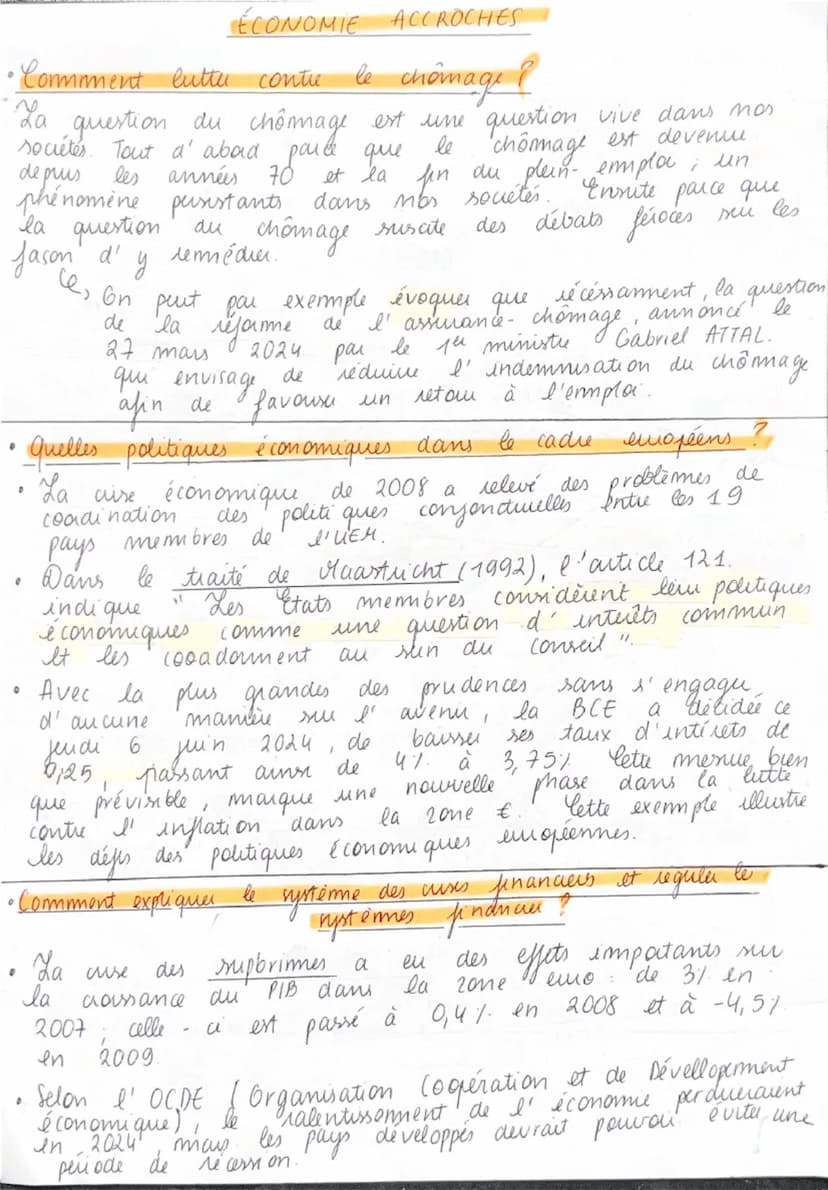 ÉCONOMIE ACCROCHES
• Commment lutter contre le chômage ?
La question du chômage est une question vive dans nos
sociétés. Tout d'abord parce que le chômage est devenu
depuis les années 70 et la fin du plein-emploi ; un
phénomène persistants dans nos sociétés. Ensuite parce que
la question du chômage suscite des débats féroces sur les
façon d'y remédier.
↳ On peut par exemple évoquer que récéssamment, la question
de la réforme de l'assurance-chômage, annoncé le
27 mars 2024 par le 1er ministre Gabriel ATTAL.
qui envisage de réduire l'indemnisation du chômage
afin de favoriser un retour à l'emploi.
• Quelles politiques économiques dans le cadre européens ?
• La crise économique de 2008 a relevé des problèmes de
coordination des politiques conjoncturelles entre les 19
pays membres de l'UEM.
• Dans le traité de Maastricht (1992), l'article 121.
indique " Les États membres considèrent leur politiques
économiques comme une question d'intérêts commun
et les cooadonnent au sein du conseil ".
• Avec la plus grandes des prudences sans s'engager
d'aucune manière sur l'avenir, la BCE a décidée ce
jeudi 6 juin 2024, de baisser ses taux d'intérets de
0,25, passant ainsi de 4% à 3,75%. Cette mesure, bien
que prévisible, marque une nouvelle phase dans la lutte
contre l'inflation dans la zone €. Cette exemple illustre
les défis des politiques économiques européennes.
• Comment expliquer le système des crises financiers et réguler le
systèmes financier ?
• La crise des supbrimes a eu des effets impotants sur
la croissance du PIB dans la zone euro : de 3% en
2007 ; celle-ci est passé à 0,4% en 2008 et à -4,5%
en 2009.
• Selon l'OCDE (Organisation Coopération et de Dévellopement
économique), le ralentissonment de l'économie perdureraient
en 2024, mais les pays développés devrait pouvoir éviter une
période de récession.